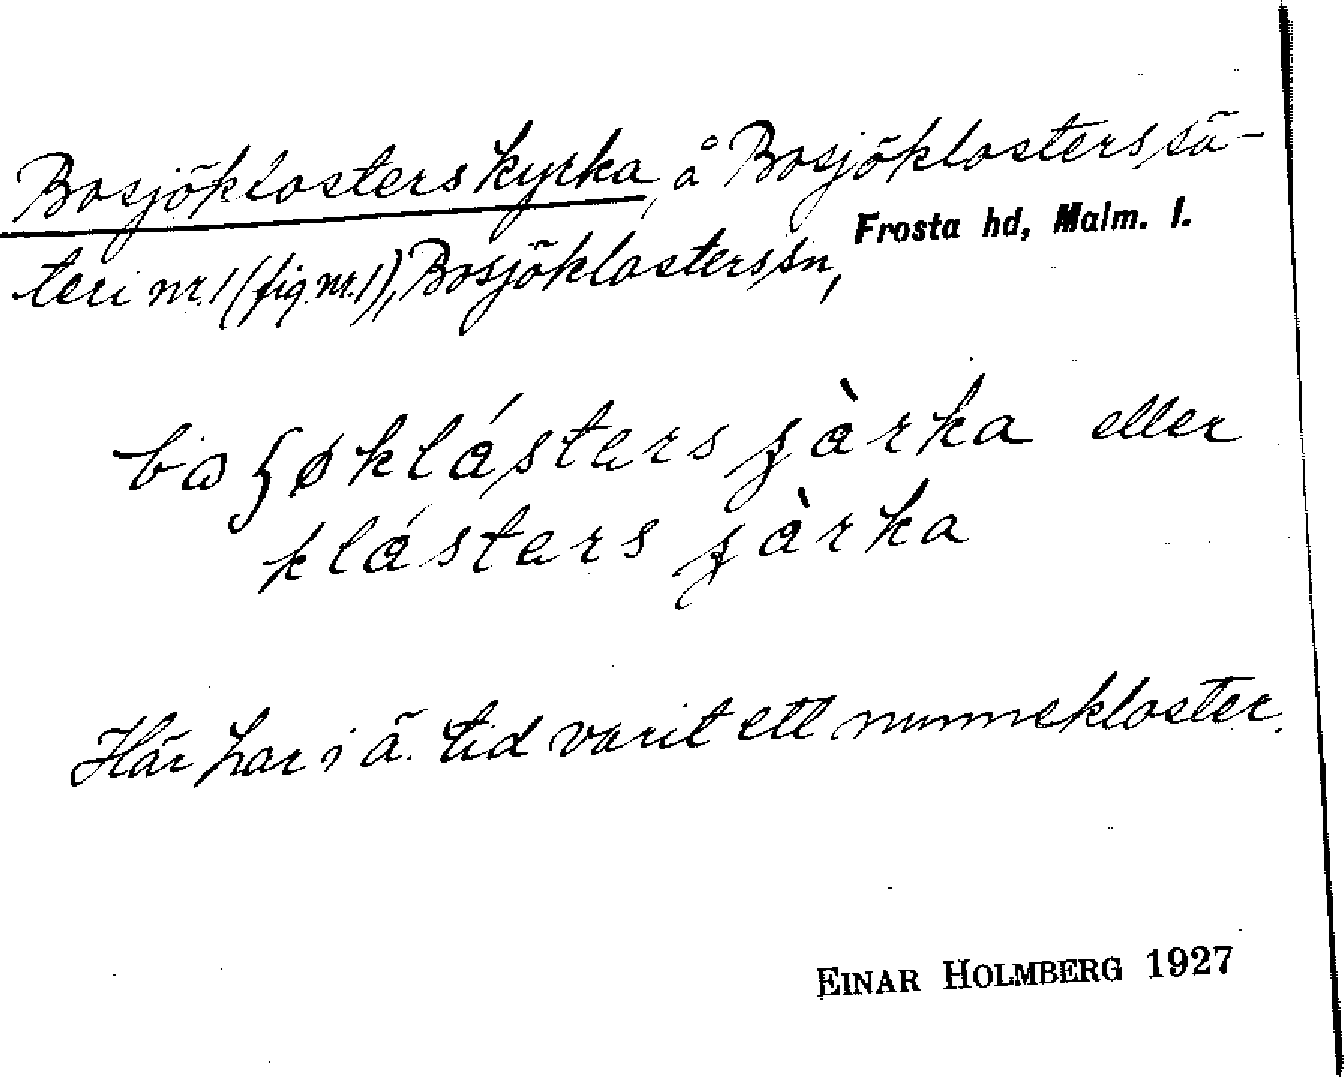 Bosjöklosters kyrka, å Bosjöklosters sä-
teri nr. 1 (fig. nr. 1), Bosjöklosters sn, Frosta hd, Malm. l.
eller
Här har i ä. tid varit ett nunnekloster.
EINAR HOLMBERG 1927